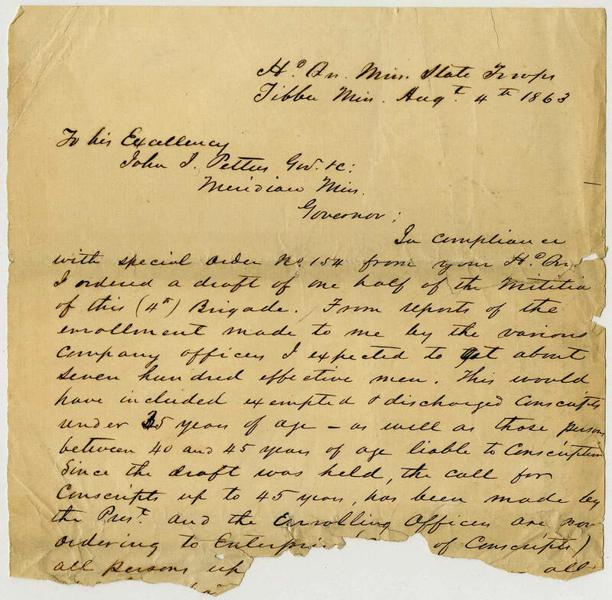 Hd Qrs. Miss. State Troops
Tibbee Miss. Augt. 4th 1863
To his Excellency
John J. Pettus Gov. &c:
Meridian Miss.
Governor:
In compliance
with special order No. 154 from your Hd Qrs.
I ordered a draft of one half of the Militia
of this (4th) Brigade. From reports of the
enrollment made to me by the various
Company officers I expected to get about
seven hundred effective men. This would
have included exempted & discharged Conscripts
under 25 years of age – as well as those persons
between 40 and 45 years of age liable to Conscription
Since the draft was held, the call for
Conscripts up to 45 years, has been made by
the Prest. and the Enrolling Officers are now
ordering to Enterprise of Conscripts)
all persons up all